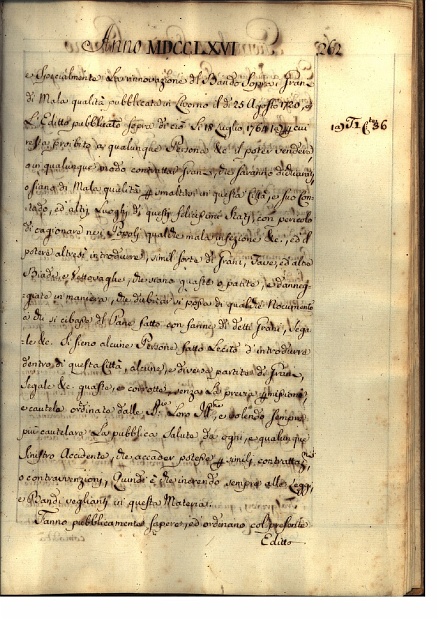 Anno MDCCLXVI 262
e Specialmente La rinnovazione del Bando Sopra i Grani
di Mala qualità pubblicato in Livorno il dì 25 Agosto 1720, e
L'Editto pubblicato sopra di ciò Li 18 Luglio 1764 in cui
resta proibito a qualunque Persona &c. il poter vendere,
o in qualunque modo contrattar Grani, che saranno dichiarati
o siano di Mala qualità smaltirsi in questa Città, e suo Con-
tado, ed altri Luoghi di questi felicissimi Stati, con pericolo
di cagionare nei Popoli qualche mala infezione &c., ed il
potere altresì introdurre, simil sorte di Grani, Fave, ed altre
Biade, e Vettovaglie, che siano guaste o patite, e danneg-
giate in maniera, che dubitar si possa di qualche Nocumento
a chi si cibasse del Pane fatto con farine di detti Grani, Sega-
le &c. Si sieno alcune Persone fatto Lecito d'introdurre
dentro di questa Città, alcune, e diverse partite di Grani,
Segale &c. guaste, e corrotte, senza La precisa permissione,
e cautele ordinate dalle Loro e volendo Sempre
più cautelare La pubblica Salute da ogni, e qualunque
sinistro Accidente, che accader potesse simili contrattazni,
o contravvenzioni, Quindi è che inerendo sempre alle Leggi,
e Bandi veglianti in questa Materia.
Fanno pubblicamente sapere, ed ordinano col presente
Editto